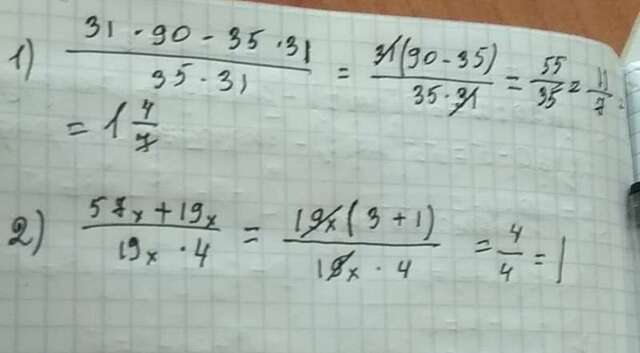 1) (31 · 90 - 35 · 31) / (35 · 31) = 31(90-35) / (35 · 31) = 55/35 = 11/7 =
= 1 4/7
2) (57x + 19x) / (19x · 4) = 19x(3+1) / (19x · 4) = 4/4 = 1